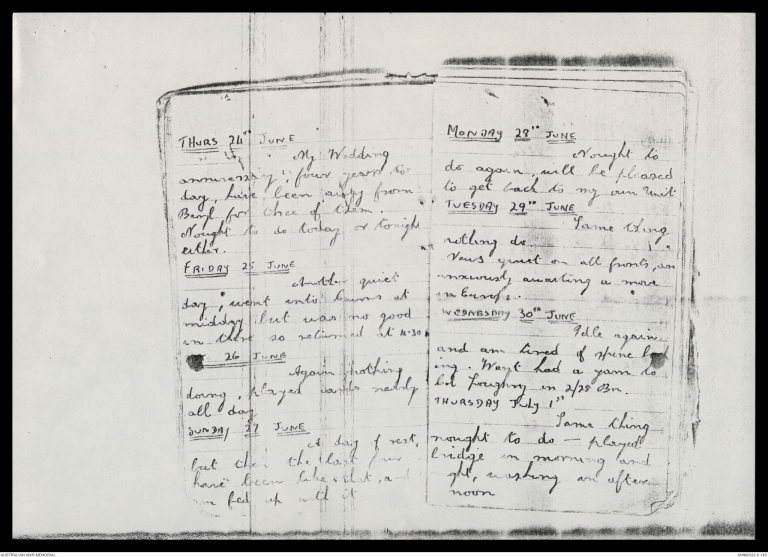 THURS 24th JUNE
My Wedding
anniversary; four years to
day, have been away from
Beryl for three of them.
Nought to do today or tonight
either.
FRIDAY 25 JUNE
Another quiet
day, went into at
midday but was no good
in there so returned at 4.30
26 JUNE
Again nothing
doing, played cards nearly
all day
SUNDAY 27 JUNE
A day of rest,
but then the last few
have been like that, and
fed up with it
MONDAY 28th JUNE
Nought to
do again, will be pleased
to get back to my own Unit
TUESDAY 29th JUNE
Same thing
nothing do.
News quiet on all fronts, am
anxiously awaiting a move
in Europe.
WEDNESDAY 30th JUNE
Idle again
and am tired of spine
ing. had a yarn to
in 2/28 Bn.
THURSDAY July 1st
Same thing
nought to do — played
bridge in morning and
night, washing in after
noon
AUSTRALIAN WAR MEMORIAL